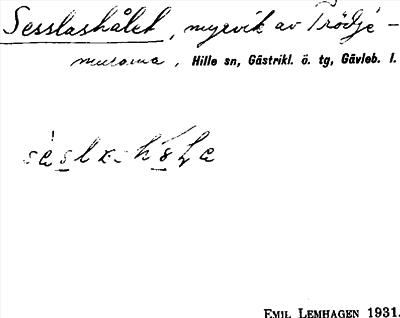 Sesslashålet, myrvik av Trödje-
murarna, Hille sn, Gästrikl. ö. tg, Gävleb. l.
EMIL LEMHAGEN 1931.